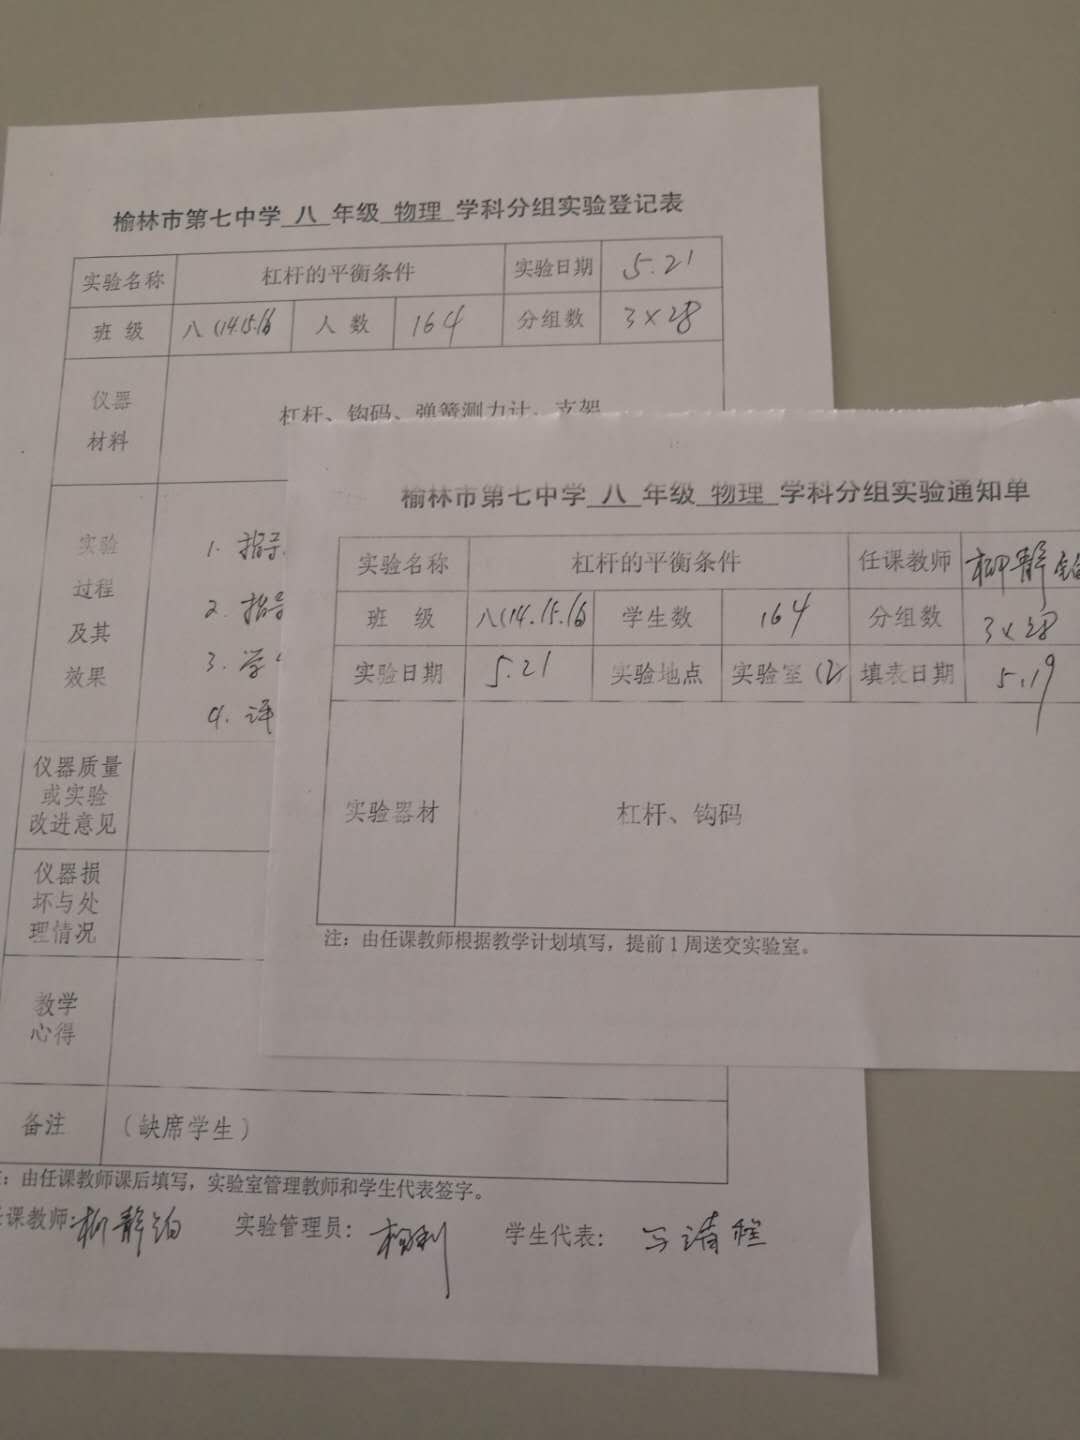 榆林市第七中学 八 年级 物理 学科分组实验登记表
实验名称 杠杆的平衡条件 实验日期 5.21
班 级 八(14.15.16 人 数 164 分组数 3×28
仪器
材料
杠杆、钩码、弹簧测力计、支架
实验
过程
及其
效果
1. 指导
2. 指导
3. 学
4. 评
仪器质量
或实验
改进意见
仪器损
坏与处
理情况
教学
心得
备注 (缺席学生)
:由任课教师课后填写，实验室管理教师和学生代表签字。
课教师:柳静 实验管理员: 学生代表:
榆林市第七中学 八 年级 物理 学科分组实验通知单
实验名称 杠杆的平衡条件 任课教师 柳静
班 级 八(14.15.16) 学生数 164 分组数 3×28
实验日期 5.21 实验地点 实验室(2) 填表日期 5.19
实验器材 杠杆、钩码
注：由任课教师根据教学计划填写，提前1周送交实验室。